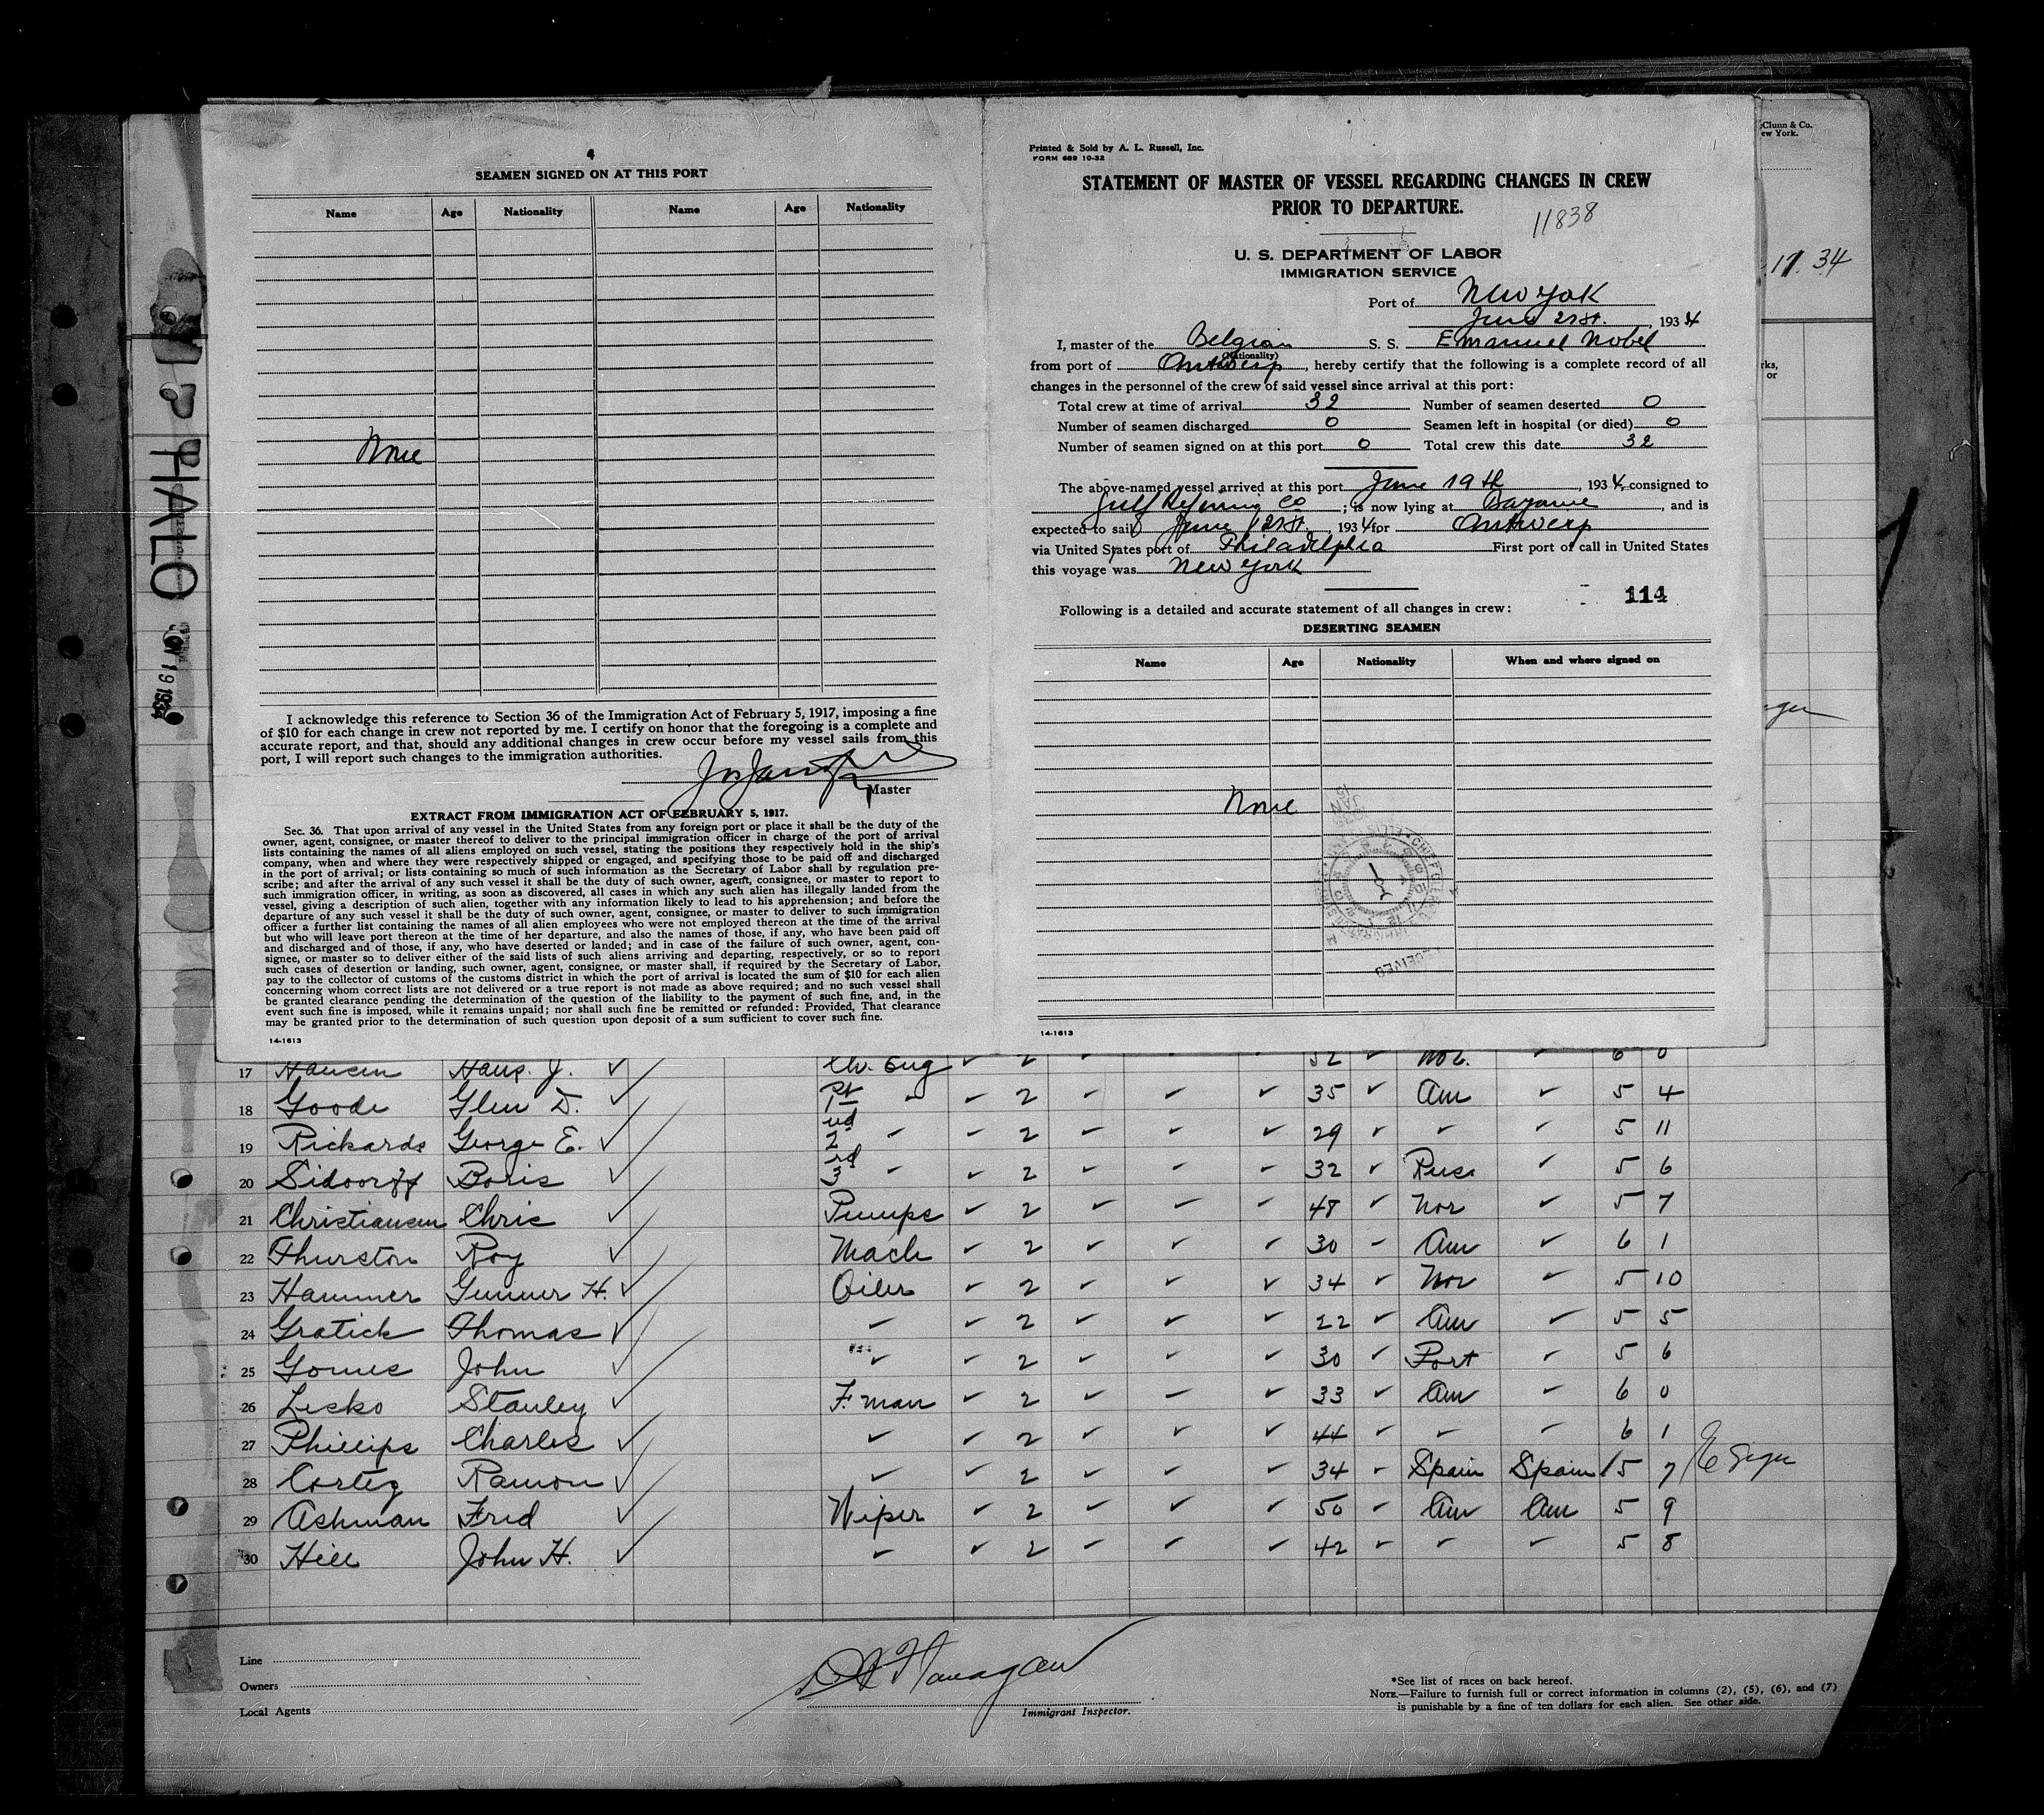 4
SEAMEN SIGNED ON AT THIS PORT
Name Age Nationality Name Age Nationality
None
I acknowledge this reference to Section 36 of the Immigration Act of February 5, 1917, imposing a fine
of $10 for each change in crew not reported by me. I certify on honor that the foregoing is a complete and
accurate report, and that, should any additional changes in crew occur before my vessel sails from this
port, I will report such changes to the immigration authorities.
Master
EXTRACT FROM IMMIGRATION ACT OF FEBRUARY 5, 1917.
Sec. 36. That upon arrival of any vessel in the United States from any foreign port or place it shall be the duty of the
owner, agent, consignee, or master thereof to deliver to the principal immigration officer in charge of the port of arrival
lists containing the names of all aliens employed on such vessel, stating the positions they respectively hold in the ship's
company, when and where they were respectively shipped or engaged, and specifying those to be paid off and discharged
in the port of arrival; or lists containing so much of such information as the Secretary of Labor shall by regulation pre-
scribe; and after the arrival of any such vessel it shall be the duty of such owner, agent, consignee, or master to report to
such immigration officer, in writing, as soon as discovered, all cases in which any such alien has illegally landed from the
vessel, giving a description of such alien, together with any information likely to lead to his apprehension; and before the
departure of any such vessel it shall be the duty of such owner, agent, consignee, or master to deliver to such immigration
officer a further list containing the names of all alien employees who were not employed thereon at the time of the arrival
but who will leave port thereon at the time of her departure, and also the names of those, if any, who have been paid off
and discharged and of those, if any, who have deserted or landed; and in case of the failure of such owner, agent, con-
signee, or master so to deliver either of the said lists of such aliens arriving and departing, respectively, or so to report
such cases of desertion or landing, such owner, agent, consignee, or master shall, if required by the Secretary of Labor,
pay to the collector of customs of the customs district in which the port of arrival is located the sum of $10 for each alien
concerning whom correct lists are not delivered or a true report is not made as above required; and no such vessel shall
be granted clearance pending the determination of the question of the liability to the payment of such fine, and, in the
event such fine is imposed, while it remains unpaid; nor shall such fine be remitted or refunded: Provided, That clearance
may be granted prior to the determination of such question upon deposit of a sum sufficient to cover such fine.
14-1613
Printed & Sold by A. L. Russell, Inc.
FORM 689 10-32
STATEMENT OF MASTER OF VESSEL REGARDING CHANGES IN CREW
PRIOR TO DEPARTURE.
11838
U. S. DEPARTMENT OF LABOR
IMMIGRATION SERVICE
Port of New York
June 21st. , 1934
I, master of the Belgian S. S. Emanuel Nobel
(Nationality)
from port of Antwerp , hereby certify that the following is a complete record of all
changes in the personnel of the crew of said vessel since arrival at this port:
Total crew at time of arrival 32 Number of seamen deserted 0
Number of seamen discharged 0 Seamen left in hospital (or died) 0
Number of seamen signed on at this port 0 Total crew this date 32
The above-named vessel arrived at this port June 19th , 1934, consigned to
Gulf Refining Co ; is now lying at Bayonne , and is
expected to sail June 21st. , 1934 for Antwerp
via United States port of Philadelphia First port of call in United States
this voyage was New York
114
Following is a detailed and accurate statement of all changes in crew:
DESERTING SEAMEN
Name Age Nationality When and where signed on
None
14-1613
Clunn & Co.
ew York.
17. 34
HALO
19 1934
17 Hansen Hans. J. Ch. Eng 2 52 Nor. 6 0
18 Goode Glen D. 1st 2 35 Am 5 4
19 Rickards George E. 2nd 2 29 5 11
20 Sidoorff Boris 3rd 2 32 Russ 5 6
21 Christiansen Chris Pumps 2 48 Nor 5 7
22 Thurston Roy Mach 2 30 Am 6 1
23 Hammer Gunner H. Oiler 2 34 Nor 5 10
24 Gratick Thomas 2 22 Am 5 5
25 Gomes John 2 30 Port 5 6
26 Lesko Stanley F. man 2 33 Am 6 0
27 Phillips Charles 2 44 6 1
28 Cortez Ramon 2 34 Spain Spain 5 7
29 Ashman Fred Wiper 2 50 Am Am 5 9
30 Hill John H. 2 42 5 8
Line
Owners
Local Agents
Flanagan
Immigrant Inspector.
*See list of races on back hereof.
NOTE.—Failure to furnish full or correct information in columns (2), (5), (6), and (7)
is punishable by a fine of ten dollars for each alien. See other side.